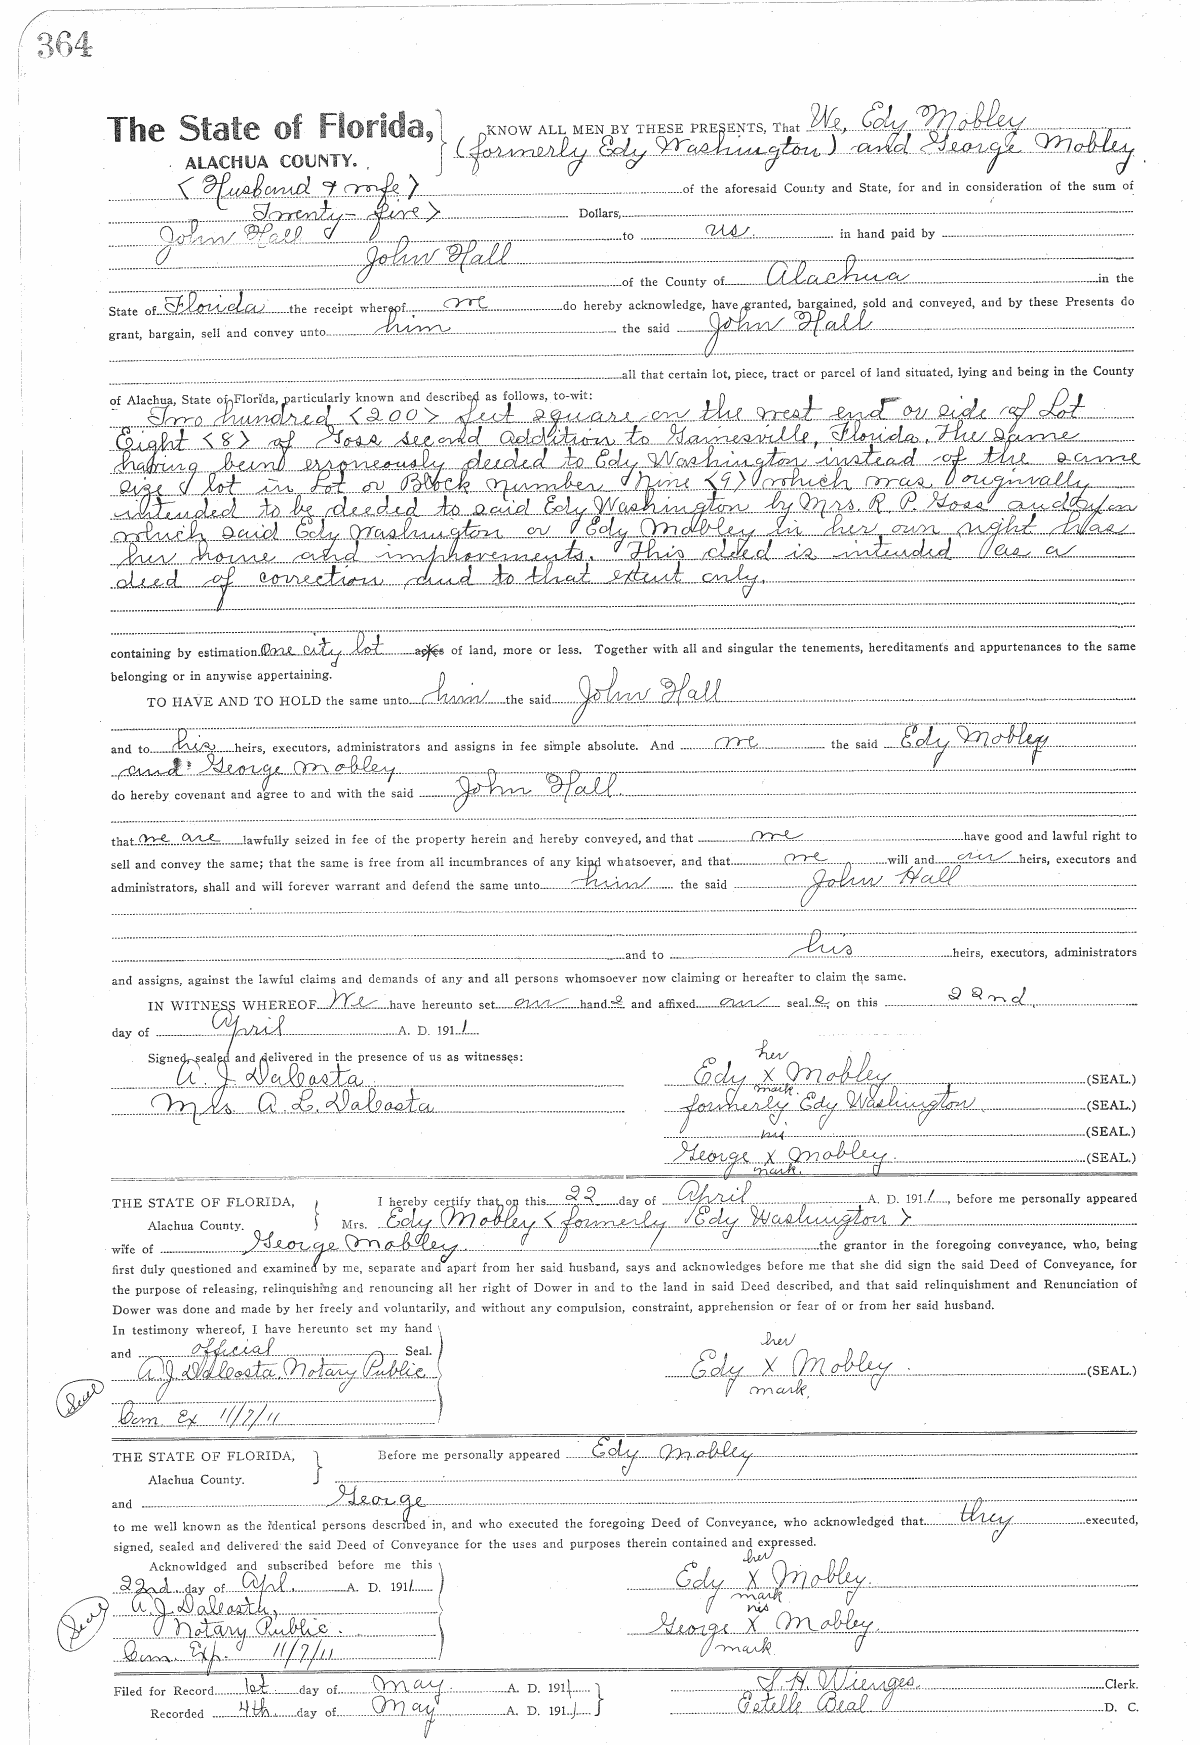 364
The State of Florida, KNOW ALL MEN BY THESE PRESENTS, That We, Edy Mobley
ALACHUA COUNTY. (formerly Edy Washington) and George Mobley
(Husband & wife) of the aforesaid County and State, for and in consideration of the sum of
Twenty-five) Dollars,
John Hall to us in hand paid by
John Hall
of the County of Alachua in the
State of Florida the receipt whereof we do hereby acknowledge, have granted, bargained, sold and conveyed, and by these Presents do
grant, bargain, sell and convey unto him the said John Hall
all that certain lot, piece, tract or parcel of land situated, lying and being in the County
of Alachua, State of Florida, particularly known and described as follows, to-wit:
Two hundred (200) feet square on the west end or side of Lot
Eight (8) of Goss second addition to Gainesville, Florida. The same
having been erroneously deeded to Edy Washington instead of the same
size lot in Lot or Block number Nine (9) which was originally
intended to be deeded to said Edy Washington by Mrs. R. P. Goss and upon
which said Edy Washington or Edy Mobley in her own right has
her home and improvements. This deed is intended as a
deed of correction and to that extent only.
containing by estimation One city lot acres of land, more or less. Together with all and singular the tenements, hereditaments and appurtenances to the same
belonging or in anywise appertaining.
TO HAVE AND TO HOLD the same unto him the said John Hall
and to his heirs, executors, administrators and assigns in fee simple absolute. And we the said Edy Mobley
and George Mobley
do hereby covenant and agree to and with the said John Hall.
that we are lawfully seized in fee of the property herein and hereby conveyed, and that we have good and lawful right to
sell and convey the same; that the same is free from all incumbrances of any kind whatsoever, and that we will and our heirs, executors and
administrators, shall and will forever warrant and defend the same unto him the said John Hall
and to his heirs, executors, administrators
and assigns, against the lawful claims and demands of any and all persons whomsoever now claiming or hereafter to claim the same.
IN WITNESS WHEREOF We have hereunto set our hand s and affixed our seal s, on this 22nd.
day of April A. D. 1911
Signed, sealed and delivered in the presence of us as witnesses:
her
A. J. DaCosta Edy X Mobley (SEAL.)
mark.
Mrs. A. L. DaCosta formerly Edy Washington (SEAL.)
his (SEAL.)
George X Mobley. (SEAL.)
mark.
THE STATE OF FLORIDA, I hereby certify that on this 22 day of April A. D. 1911, before me personally appeared
Alachua County. Mrs. Edy Mobley (formerly Edy Washington)
wife of George Mobley. the grantor in the foregoing conveyance, who, being
first duly questioned and examined by me, separate and apart from her said husband, says and acknowledges before me that she did sign the said Deed of Conveyance, for
the purpose of releasing, relinquishing and renouncing all her right of Dower in and to the land in said Deed described, and that said relinquishment and Renunciation of
Dower was done and made by her freely and voluntarily, and without any compulsion, constraint, apprehension or fear of or from her said husband.
In testimony whereof, I have hereunto set my hand
and official Seal. her
A. J. DaCosta, Notary Public Edy X Mobley. (SEAL.)
Seal mark.
Com. Ex 11/7/11
THE STATE OF FLORIDA, Before me personally appeared Edy Mobley
Alachua County.
and George
to me well known as the identical persons described in, and who executed the foregoing Deed of Conveyance, who acknowledged that they executed,
signed, sealed and delivered the said Deed of Conveyance for the uses and purposes therein contained and expressed.
Acknowldged and subscribed before me this her
22nd. day of Apl. A. D. 1911 Edy X Mobley.
mark
A. J. DaCosta, his
Seal Notary Public. George X Mobley.
Com. Exp. 11/7/11 mark
Filed for Record 1st day of May. A. D. 1911 S. H. Wienges. Clerk.
Recorded 4th. day of May A. D. 1911 Estelle Beal D. C.